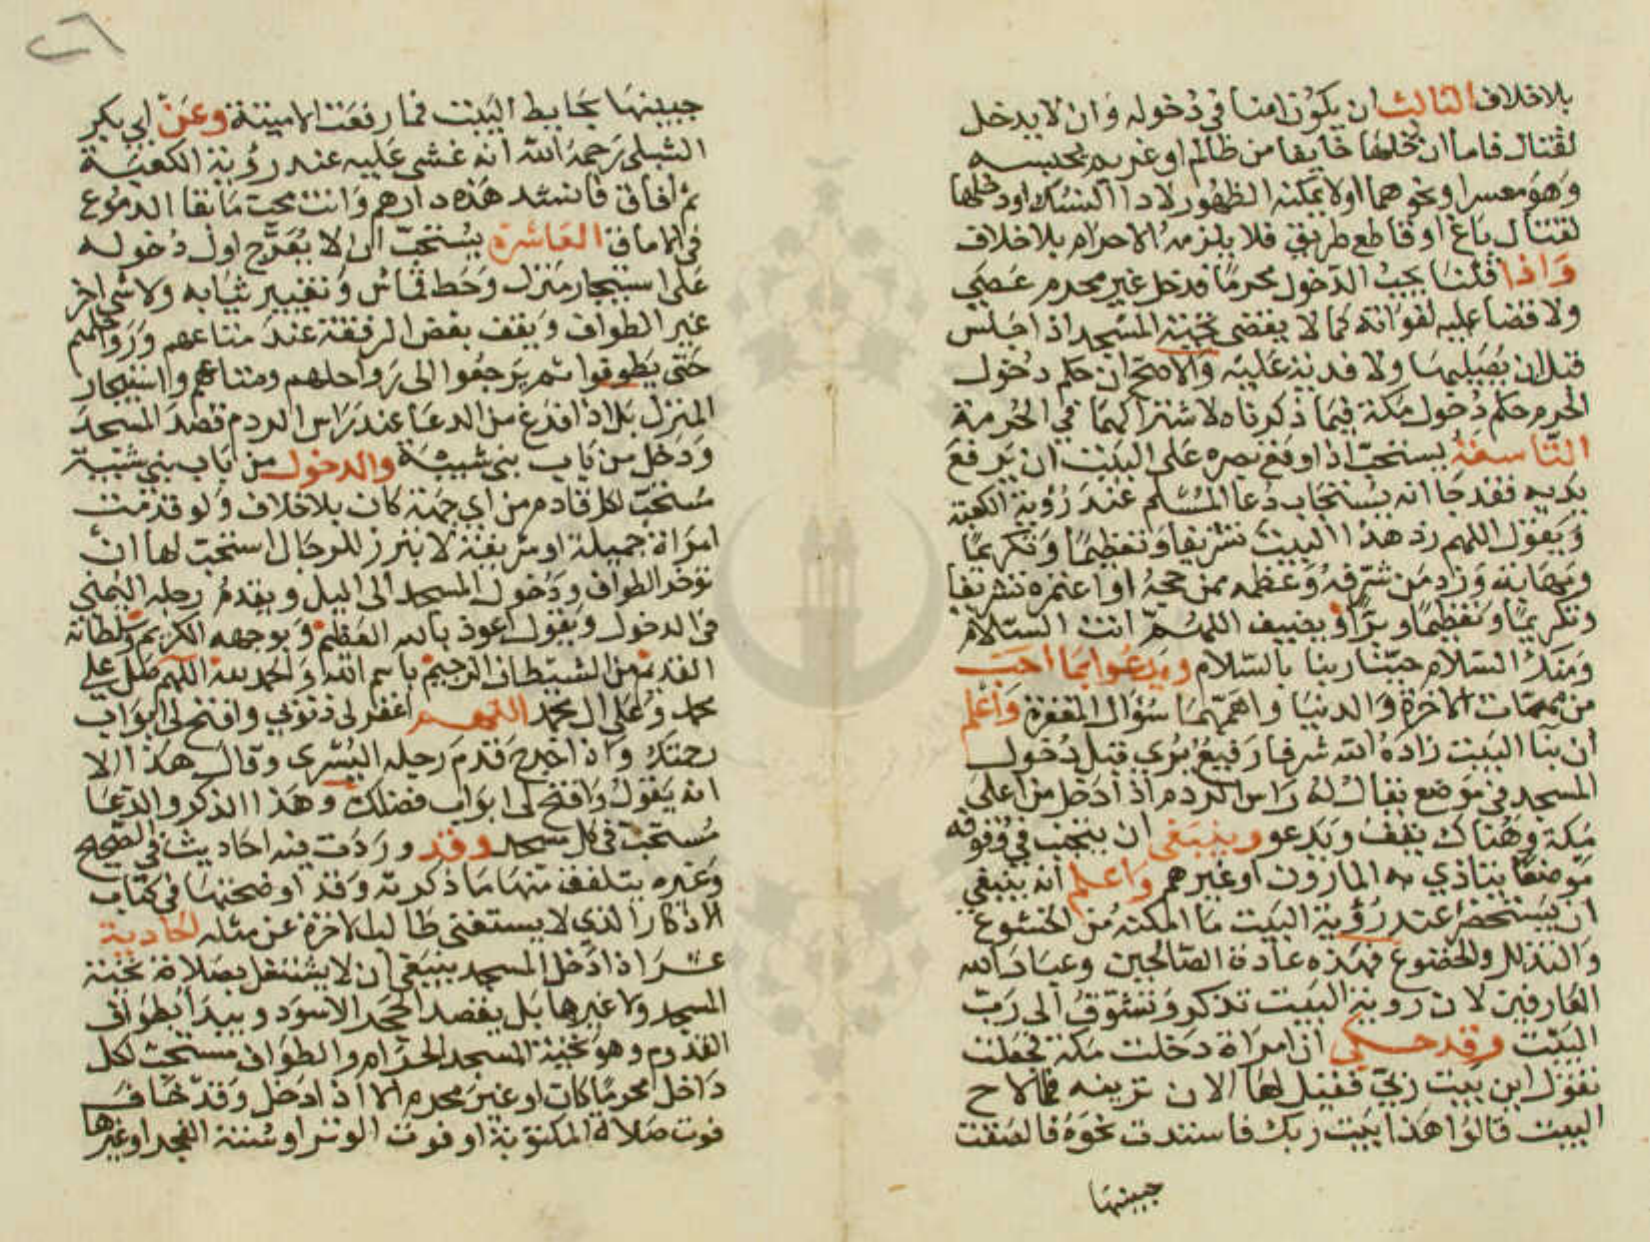 بلاخلاف الثالث ان يكون امنا في دخوله وان لا يدخل
لقتال فاما ان دخلها خايفا من ظالم او غريم يحبسه
وهو معسر او نحوهما او لا يمكنه الظهور لادا النسك او دخلها
لقتال باغ او قاطع طريق فلا يلزمه الاحرام بلاخلاف
واذا قلنا يجب الدخول محرما فدخل غير محرم عصي
ولا قضا عليه لفواته كما لا يقضي تحية المسجد اذا جلس
قبل ان يصليها ولا فدية عليه والاصح ان حكم دخول
الحرم حكم دخول مكة فيما ذكرناه لاشتراكهما في الحرمة
التاسعة يستحب اذا وقع بصره على البيت ان يرفع
يديه فقد جا انه يستجاب دعا المسلم عند روية الكعبة
ويقول اللهم زد هذا البيت تشريفا وتعظيما وتكريما
ومهابة وزد من شرفه وعظمه ممن حجه او اعتمره تشريفا
وتكريما وتعظيما وبرا ويضيف اللهم انت السلام
ومنك السلام حينا ربنا بالسلام ويدعوا بما احب
من مهمات الاخرة والدنيا واهمها سؤال المغفرة واعلم
ان بنا البيت زاده الله شرفا رفيع يرى قبل دخول
المسجد في موضع يقال له راس الردم اذا دخل من اعلى
مكة وهناك يقف ويدعو وينبغي ان يتجنب في وقوفه
موضعا يتاذي به المارون او غيرهم واعلم انه ينبغي
ان يستحضر عند رؤية البيت ما امكنه من الخشوع
والتذلل والخضوع فهذه عادة الصالحين وعباد الله
العارفين لان روية البيت تذكر وتشوق الى رب
البيت وقد حكي ان امراة دخلت مكة فجعلت
تقول اين بيت ربي فقيل لها الان ترينه فلما لاح
البيت قالوا هذا بيت ربك فاستندت نحوه فالصقت
جبينها
٢٦
جبينها بحايط البيت فما رفعت الا ميتة وعن ابي بكر
الشبلى رحمه الله انه غشي عليه عند رؤية الكعبة
ثم افاق فانشد هذه دارهم وانت محب ما بقا الدموع
في الاماق العاشرة يستحب ان لا يعرج اول دخوله
على استيجار منزل وحط قماش وتغيير ثيابه ولا شي اخر
غير الطواف ويقف بعض الرفقة عند متاعهم ورواحلهم
حتى يطوفوا ثم يرجعوا الى رواحلهم ومتاعهم واستيجار
المنزل بل اذا فرغ من الدعا عند راس الردم قصد المسجد
ودخل من باب بني شيبة والدخول من باب بني شيبة
مستحب لكل قادم من اي جهة كان بلاخلاف ولو قدمت
امراة جميلة او شريفة لا تبرز للرجال استحب لها ان
توخر الطواف ودخول المسجد الى اليل ويقدم رجله اليمني
في الدخول ويقول اعوذ بالله العظيم وبوجهه الكريم وسلطانه
القديم من الشيطان الرجيم باسم الله والحمد لله اللهم صل علي
محمد وعلى ال محمد اللهم اغفر لي ذنوبي وافتح لي ابواب
رحمتك واذا خرج قدم رجله اليسرى وقال هذا الا
انه يقول وافتح لي ابواب فضلك وهذا الذكر والدعا
مستحب في كل مسجد وقد وردت فيه احاديث في الصحيح
وغيره يتلفف منها ما ذكرته وقد اوضحتها في كتاب
الاذكار الذي لا يستغني طالب الاخرة عن مثله الحادية
عشر اذا دخل المسجد ينبغي ان لا يشتغل بصلاة تحية
المسجد ولا غيرها بل يقصد الحجر الاسود ويبدا بطواف
القدوم وهو تحية المسجد الحرام والطواف مستحب لكل
داخل محرما كان او غير محرم الا اذا دخل وقد خاف
فوت صلاة المكتوبة او فوت الوتر او سنة الفجر او غيرها